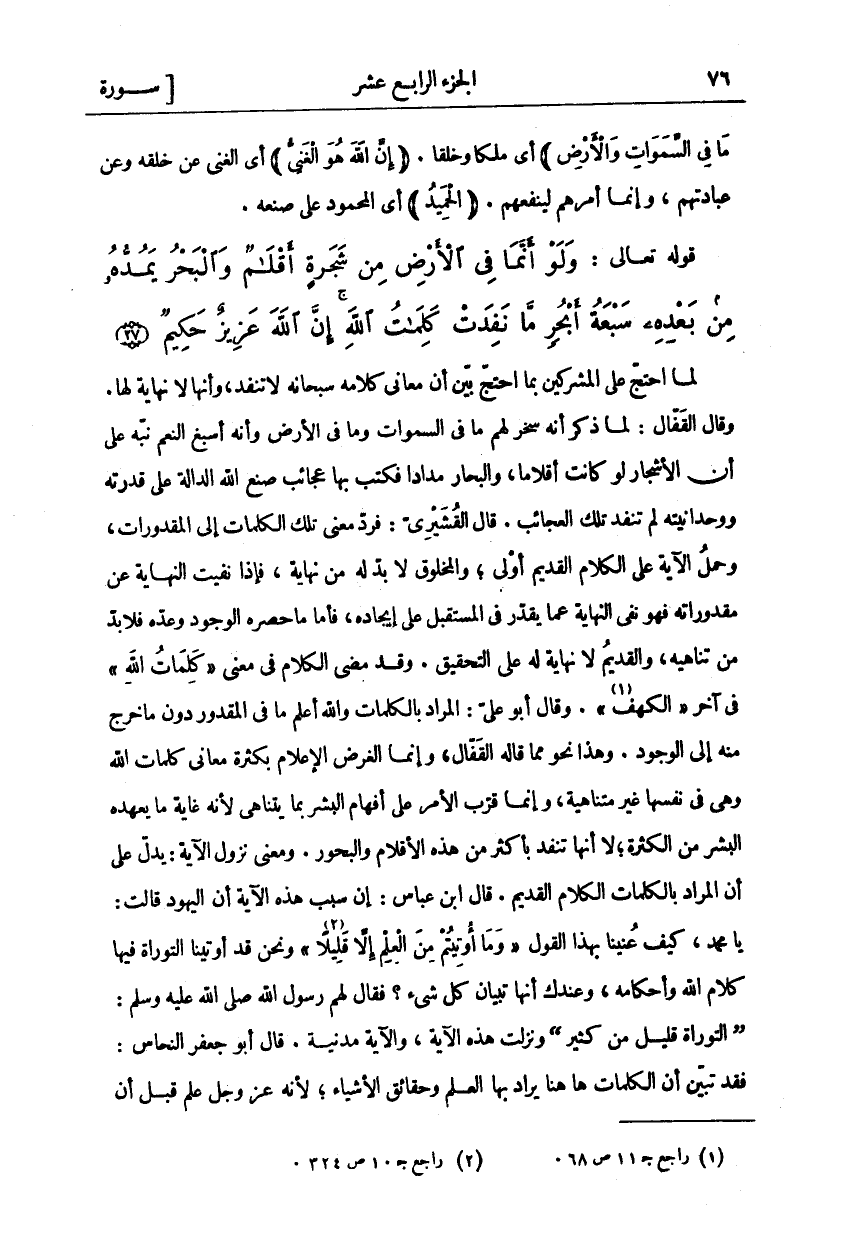 ٧٦ الجزء الرابع عشر [ ســـورة
مَا فِي السَّمَوَاتِ وَالْأَرْضِ ) أى ملكا وخلقا . ( إِنَّ اللهَ هُوَ الْغَنِيُّ ) أى الغنى عن خلقه وعن
عبادتهم ، وإنمـا أمرهم لينفعهم . ( الْحَمِيدُ ) أى المحمود على صنعه .
قوله تعـالى : وَلَوْ أَنَّمَا فِى ٱلْأَرْضِ مِن شَجَرَةٍ أَقْلَـٰمٌ وَٱلْبَحْرُ يَمُدُّهُۥ
مِنۢ بَعْدِهِۦ سَبْعَةُ أَبْحُرٍ مَّا نَفِدَتْ كَلِمَـٰتُ ٱللَّهِ ۚ إِنَّ ٱللَّهَ عَزِيزٌ حَكِيمٌ ﴿٢٧﴾
لمـا احتجّ على المشركين بما احتجّ بيّن أن معانى كلامه سبحانه لا تنفد، وأنها لا نهاية لها.
وقال القَفّال : لمـا ذكر أنه سخر لهم ما فى السموات وما فى الأرض وأنه أسبغ النعم نبّه على
أن الأشجار لو كانت أقلاما، والبحار مدادا فكتب بها عجائب صنع الله الدالة على قدرته
ووحدانيته لم تنفد تلك العجائب . قال القُشَيْرِىّ : فردّ معنى تلك الكلمات إلى المقدورات،
وحملُ الآية على الكلام القديم أوْلى ؛ والمخلوق لا بدّ له من نهاية ، فإذا نفيت النهـاية عن
مقدوراته فهو نفى النهاية عما يقدّر فى المستقبل على إيجاده، فأما ما حصره الوجود وعدّه فلا بدّ
من تناهيه، والقديمُ لا نهاية له على التحقيق . وقـد مضى الكلام فى معنى « كَلِمَاتُ اللهِ »
فى آخر « الكهف(١) » . وقال أبو علىّ : المراد بالكلمات والله أعلم ما فى المقدور دون ما خرج
منه إلى الوجود . وهذا نحو مما قاله القَفّال، وإنمـا الغرض الإعلام بكثرة معانى كلمات الله
وهى فى نفسها غير متناهية، وإنمـا قرّب الأمر على أفهام البشر بما يتناهى لأنه غاية ما يعهده
البشر من الكثرة؛ لا أنها تنفد بأكثر من هذه الأقلام والبحور . ومعنى نزول الآية : يدلّ على
أن المراد بالكلمات الكلام القديم . قال ابن عباس : إن سبب هذه الآية أن اليهود قالت :
يا محمد ، كيف عُنينا بهذا القول « وَمَا أُوتِيتُمْ مِنَ الْعِلْمِ إِلَّا قَلِيلًا(٢) » ونحن قد أوتينا التوراة فيها
كلام الله وأحكامه ، وعندك أنها تبيان كل شىء ؟ فقال لهم رسول الله صلى الله عليه وسلم :
” التوراة قليـل من كثير “ ونزلت هذه الآية ، والآية مدنيـة . قال أبو جعفر النحاس :
فقد تبيّن أن الكلمات ها هنا يراد بها العـلم وحقائق الأشياء ؛ لأنه عز وجل علم قبـل أن
(١) راجع جـ ١١ ص ٦٨ . (٢) راجع جـ ١٠ ص ٣٢٤ .